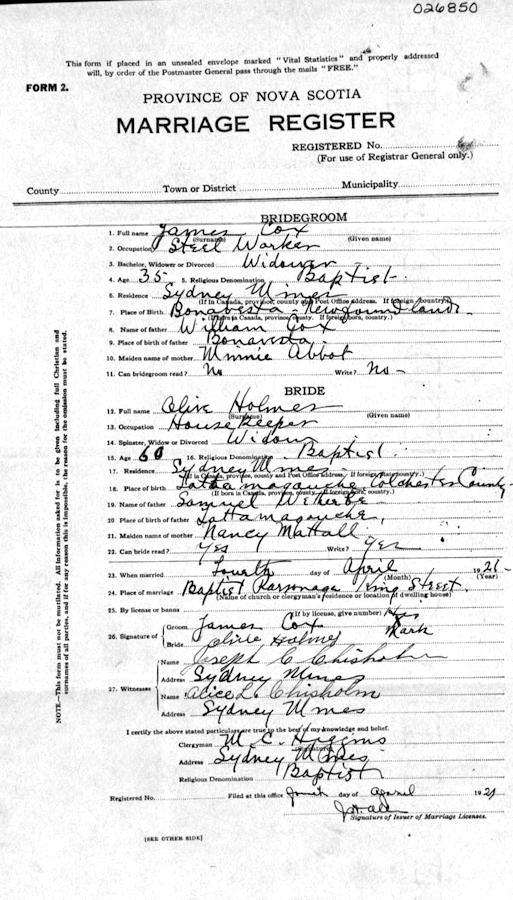 026850
This form if placed in an unsealed envelope marked "Vital Statistics" and properly addressed
will, by order of the Postmaster General pass through the mails "FREE."
FORM 2.
PROVINCE OF NOVA SCOTIA
MARRIAGE REGISTER
REGISTERED No.
(For use of Registrar General only.)
County Town or District Municipality
BRIDEGROOM
1. Full name James Cox
(Surname) (Given name)
2. Occupation Steel Worker
3. Bachelor, Widower or Divorced Widower
4. Age 35 5. Religious Denomination Baptist
6. Residence Sydney Mines
(If in Canada, province, county and Post Office address. If foreign country.)
7. Place of Birth Bonavesta Newfoundland
(If born in Canada, province, county. If foreign born, country.)
8. Name of father William Cox
9. Place of birth of father Bonavesta
10. Maiden name of mother Minnie Abbot
11. Can bridegroom read? No Write? No
BRIDE
12. Full name Olive Holmes
(Surname) (Given name)
13. Occupation Housekeeper
14. Spinster, Widow or Divorced Widow
15. Age 60 16. Religious Denomination Baptist
17. Residence Sydney Mines
(If in Canada, province, county and Post Office address. If foreign, state country.)
18. Place of birth Tattamagouche Colchester County
(If born in Canada, province, county. If foreign born, country.)
19. Name of father Samuel
20. Place of birth of father Tattamagouche,
21. Maiden name of mother Nancy Mattall
22. Can bride read? Yes Write? Yes
23. When married Fourth day of April 1921
(Month) (Year)
24. Place of marriage Baptist Parsonage King Street
(Name of church or clergyman's residence or location of dwelling house)
25. By license or banns (If by license, give number) His
26. Signature of Groom James Cox X Mark
Bride Olive Holmes
27. Witnesses Name Joseph C Chisholm
Address Sydney Mines
Name Alice L. Chisholm
Address Sydney Mines
I certify the above stated particulars are true to the best of my knowledge and belief.
Clergyman M. C. Higgins
(Signature)
Address Sydney Mines
Religious Denomination Baptist
Registered No. Filed at this office fourth day of April 1921
Signature of Issuer of Marriage Licenses.
[SEE OTHER SIDE]
NOTE.—This form must not be mutilated. All information asked for is to be given including full Christian and
surnames of all parties, and if for any reason this is impossible, the reason for the omission must be stated.